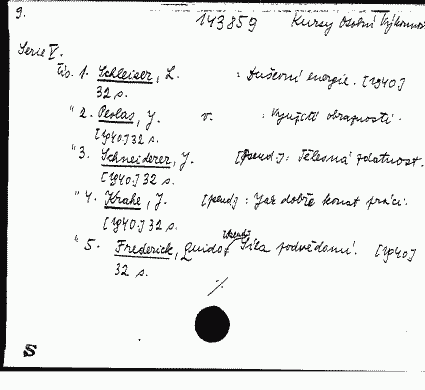 9.
143859 Kursy osobní výkonnosti
Serie V.
Čís. 1. Schleiser, L. : Duševní energie. [1940]
32 s.
" 2. Peolas, J. v. : Využití obraznosti.
[1940.] 32 s.
" 3. Schneiderer, J. [pseud.]: Tělesná zdatnost.
[1940.] 32 s.
" 4. Krahe, J. [pseud.]: Jak dobře konat práci.
[1940.] 32 s.
" 5. Frederick, Guido [pseud.] Síla podvědomí. [1940]
32 s.
%
S